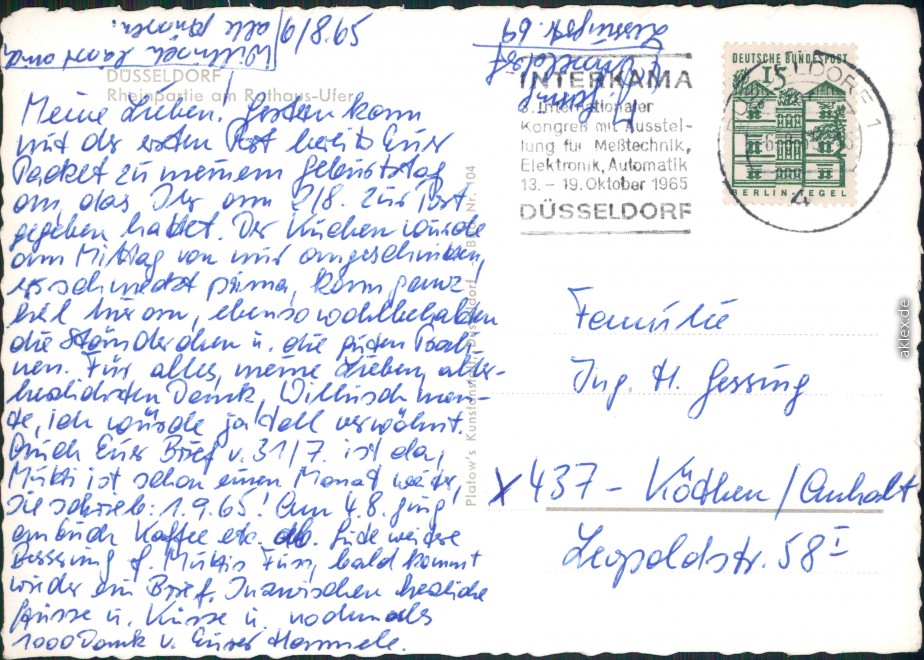 DÜSSELDORF
Rheinpartie am Rathaus-Ufer
Meine Lieben. Gestern kam
mit der ersten Post bereits Euer
Packet zu meinem Geburtstag
an, das Ihr am 2/8. zur Post
gegeben hattet. Der Kuchen wurde
am Mittag von mir angeschnitten,
er schmeckt prima, kam ganz
heil hier an, ebenso wohlbehalten
die Ständerchen u. die guten
nen. Für alles, meine Lieben, aller-
herzlichsten Dank, Willusch mein-
te, ich würde ja toll verwöhnt.
Auch Euer Brief v. 31/7. ist da,
Mutti ist schon einen Monat weiter,
sie schrieb: 1.9.65! Am 4.8. ging
an Euch Kaffee etc. ab. Gute weitere
Besserung f. Muttis Fuss, bald kommt
wieder ein Brief. Inzwischen herzliche
Grüsse u. Küsse u. nochmals
1000 Dank v. Eurer
6/8.65
Düsseldorf
69
Platow's Kunstanstalt, Düsseldorf - Best. Nr. 104
INTERKAMA
3. Internationaler
Kongreß mit Ausstel-
lung für Meßtechnik,
Elektronik, Automatik
13. - 19. Oktober 1965
DÜSSELDORF
DEUTSCHE BUNDESPOST
15
BERLIN-TEGEL
DÜSSELDORF 1
Familie
Ing. H. Gessing
x 437 - Köthen / Anhalt
Leopoldstr. 58 I
aklex.de